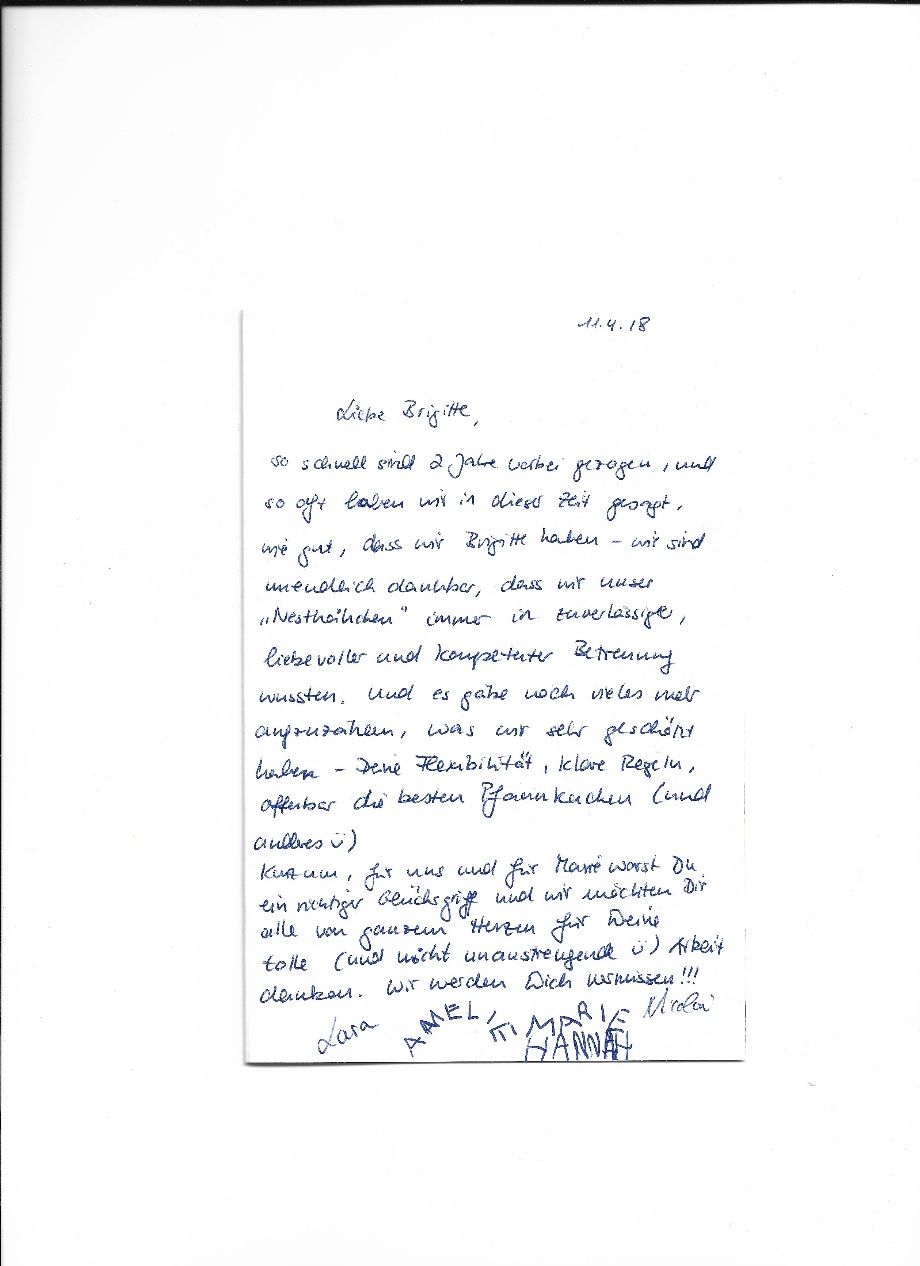 11.4.18
Liebe Brigitte,
so schnell sind 2 Jahre vorbei gezogen, und
so oft haben wir in dieser Zeit gesagt,
wie gut, dass wir Brigitte haben - wir sind
unendlich dankbar, dass wir unser
„Nesthäkchen" immer in zuverlässiger,
liebevoller und kompetenter Betreuung
wussten. Und es gäbe noch vieles mehr
aufzuzählen, was wir sehr geschätzt
haben - Deine Flexibilität, klare Regeln,
offenbar die besten Pfannkuchen (und
anderes ü)
Kurzum, für uns und für Marie warst Du
ein richtiger Glücksgriff und wir möchten Dir
alle von ganzem Herzen für Deine
tolle (und nicht unanstrengende ü) Arbeit
danken. Wir werden Dich vermissen!!!
Lara AMELIE MARIE Nicolai
HANNAH